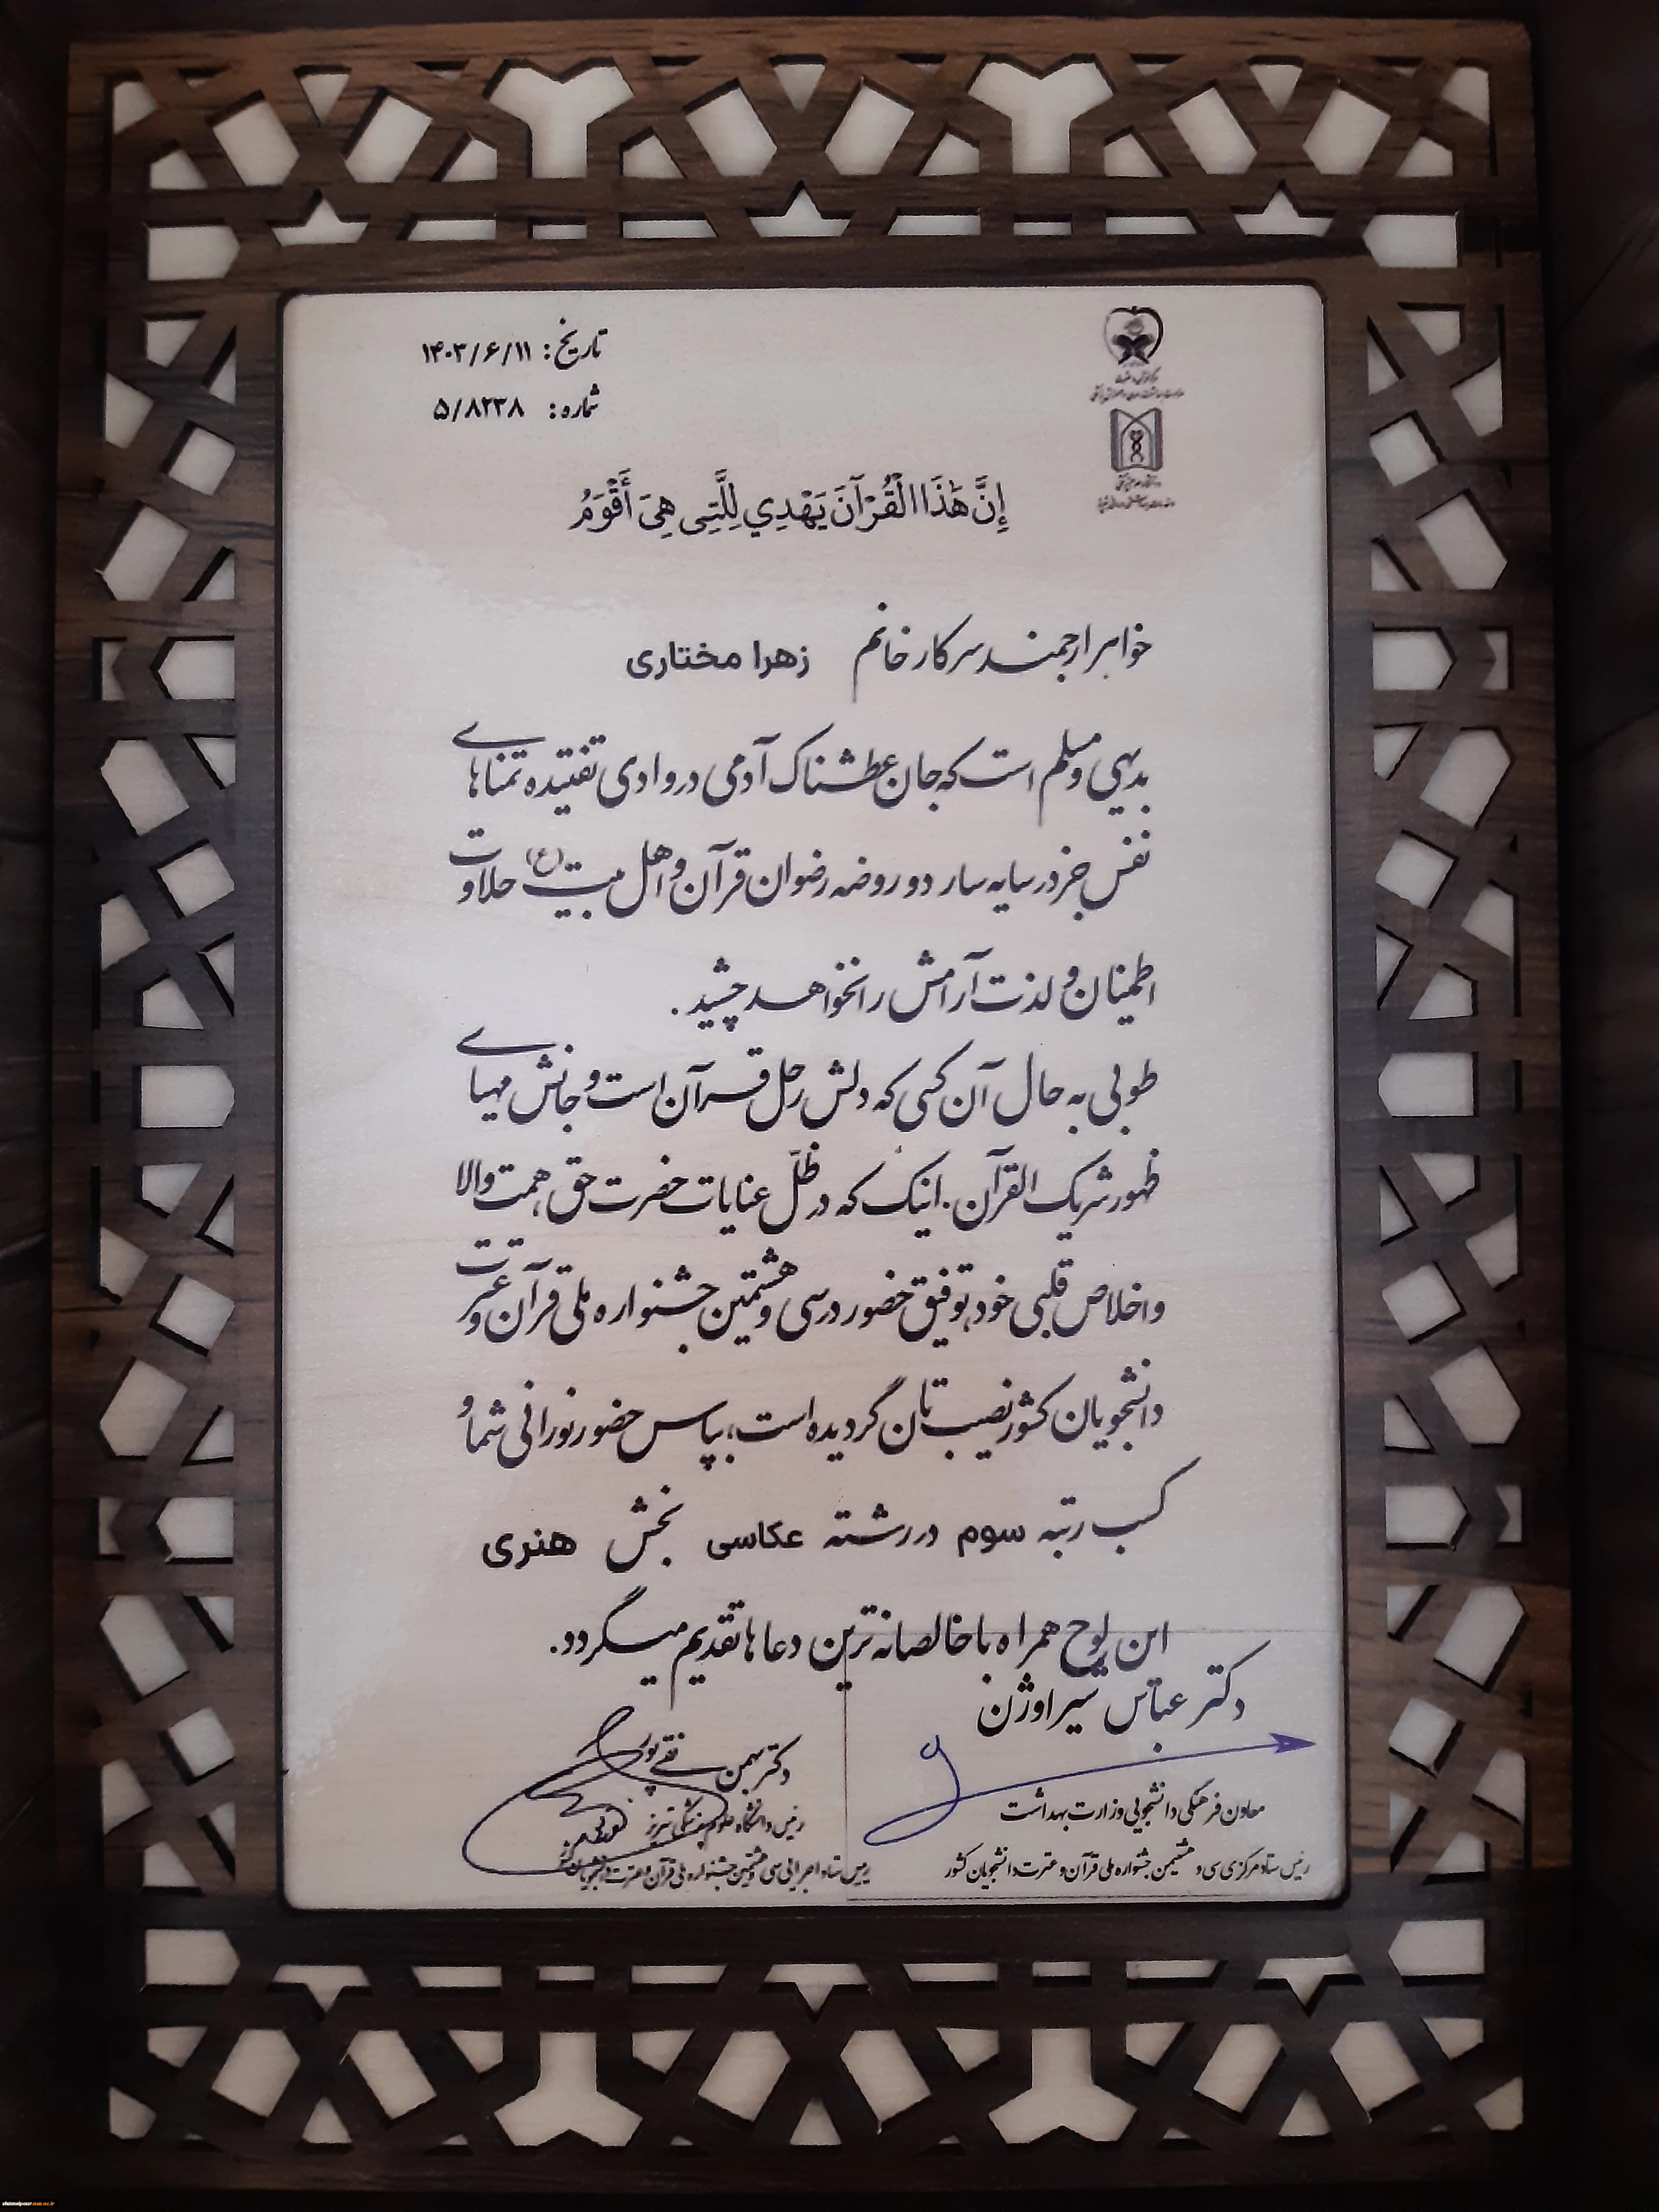 تاریخ: ۱۴۰۳/۶/۱۱
شماره: ۵/۸۲۳۸
إِنَّ هَٰذَا الْقُرْآنَ يَهْدِي لِلَّتِي هِيَ أَقْوَمُ
خواهر ارجمند سرکار خانم زهرا مختاری
بدیهی و مسلم است که جان عطشناک آدمی در وادی تفتیده تمناهای
نفس جز در سایه سار دو روضه رضوان قرآن و اهل بیت (ع) حلاوت
اطمینان و لذت آرامش را نخواهد چشید.
طوبی به حال آن کسی که دلش رحل قرآن است و جانش مهیای
ظهور شریک القرآن. اینک که در ظلّ عنایات حضرت حق، همت والا
و اخلاص قلبی خود، توفیق حضور در سی و هشتمین جشنواره ملی قرآن و عترت
دانشجویان کشور نصیب تان گردیده است، بپاس حضور نورانی شما و
کسب رتبه سوم در رشته عکاسی بخش هنری
این لوح همراه با خالصانه ترین دعاها تقدیم میگردد.
دکتر عباس شیراوژن
معاون فرهنگی دانشجویی وزارت بهداشت
رئیس ستاد مرکزی سی و هشتمین جشنواره ملی قرآن و عترت دانشجویان کشور
دکتر بهمن نقی پور
رئیس دانشگاه علوم پزشکی تبریز
رییس ستاد اجرایی سی و هشتمین جشنواره ملی قرآن و عترت دانشجویان